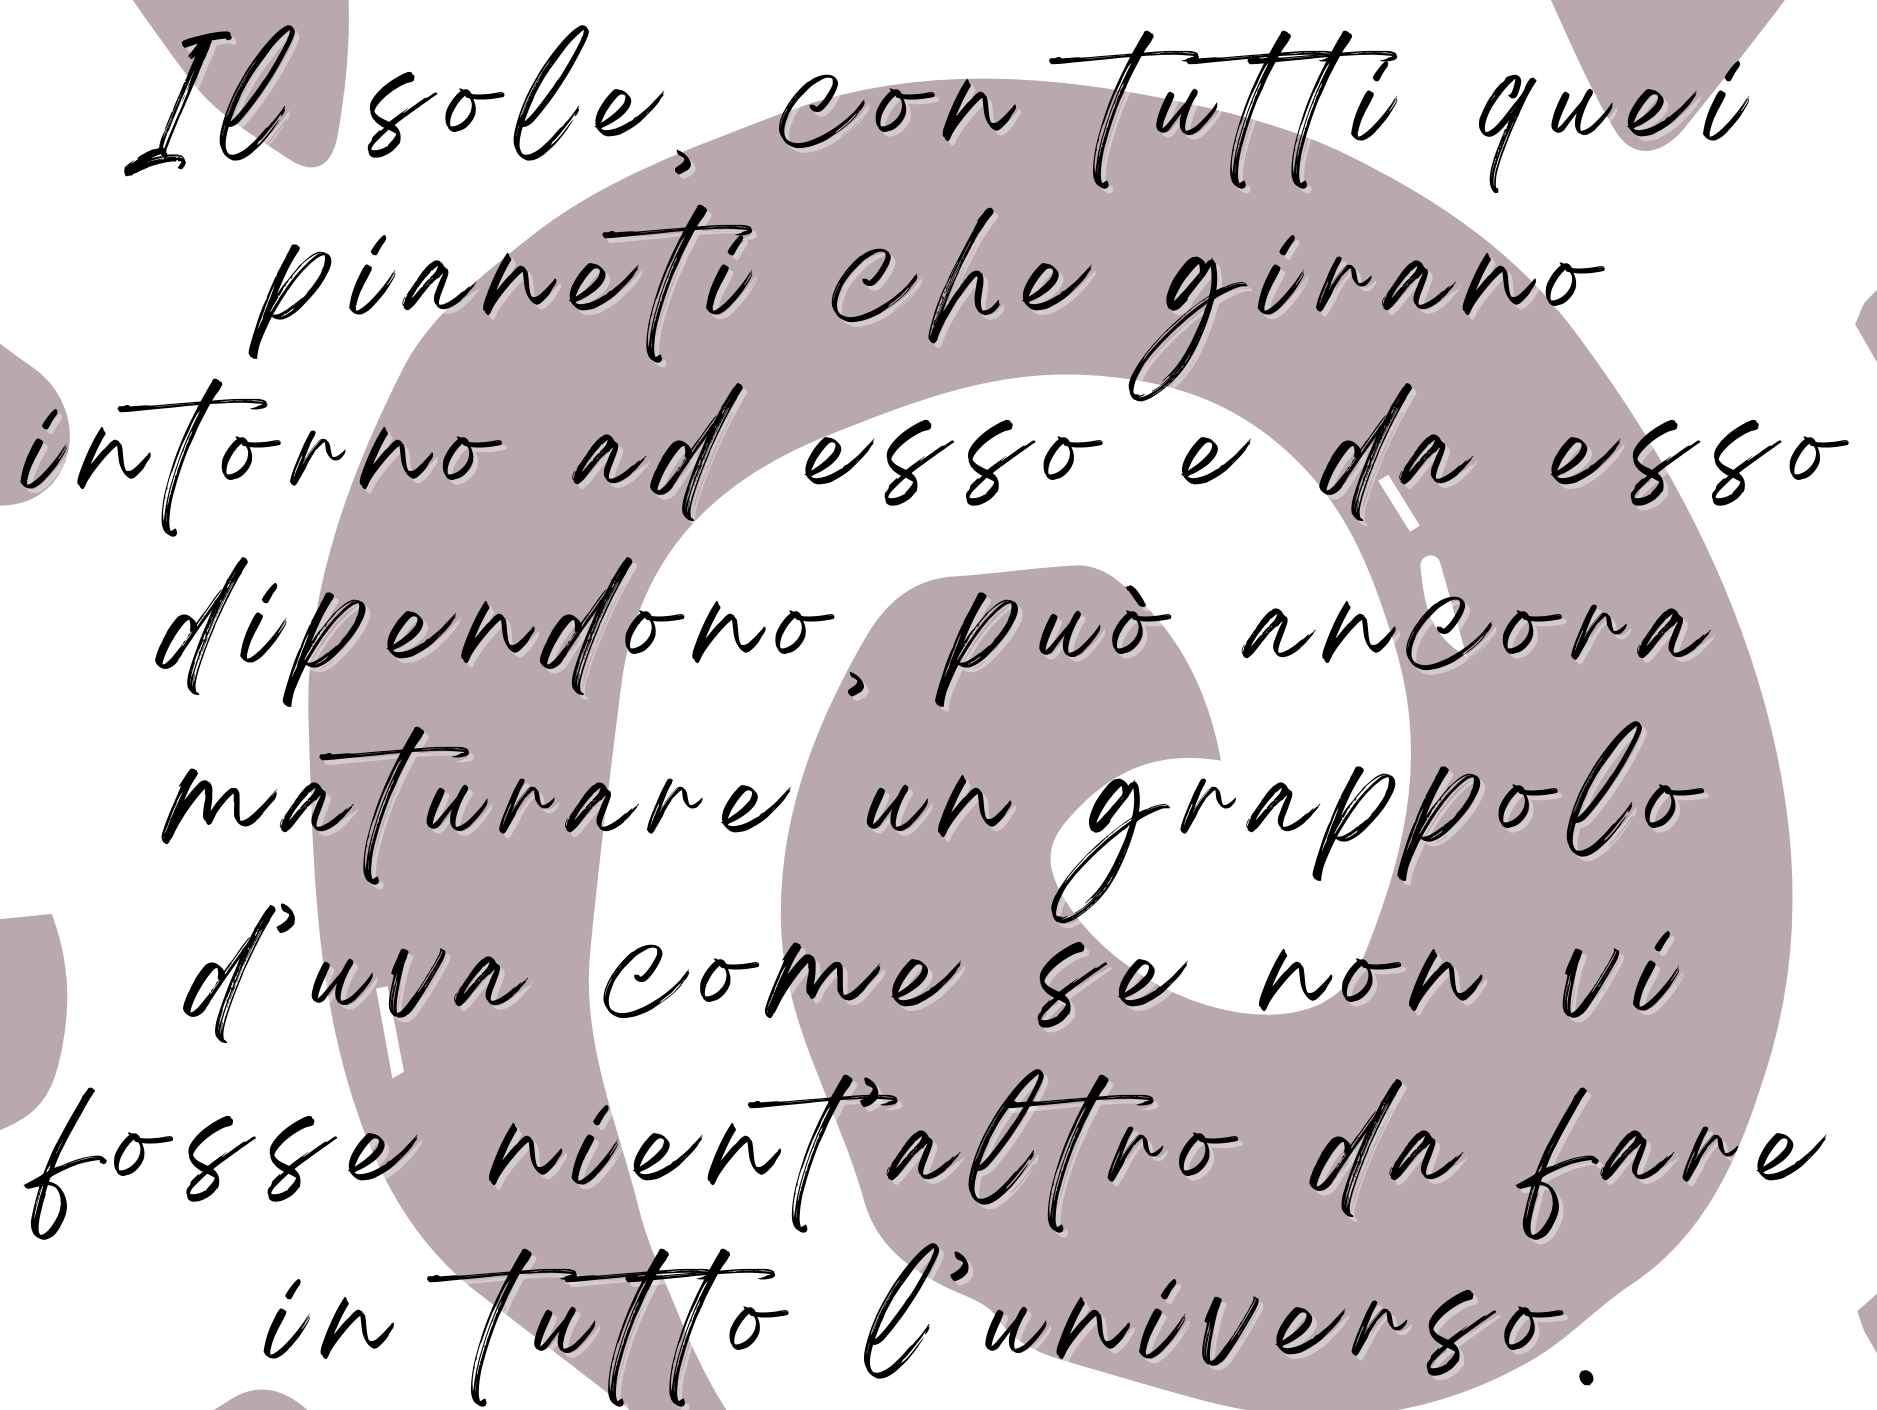 Il sole, con tutti quei
pianeti che girano
intorno ad esso e da esso
dipendono, può ancora
maturare un grappolo
d'uva come se non vi
fosse nient'altro da fare
in tutto l'universo.